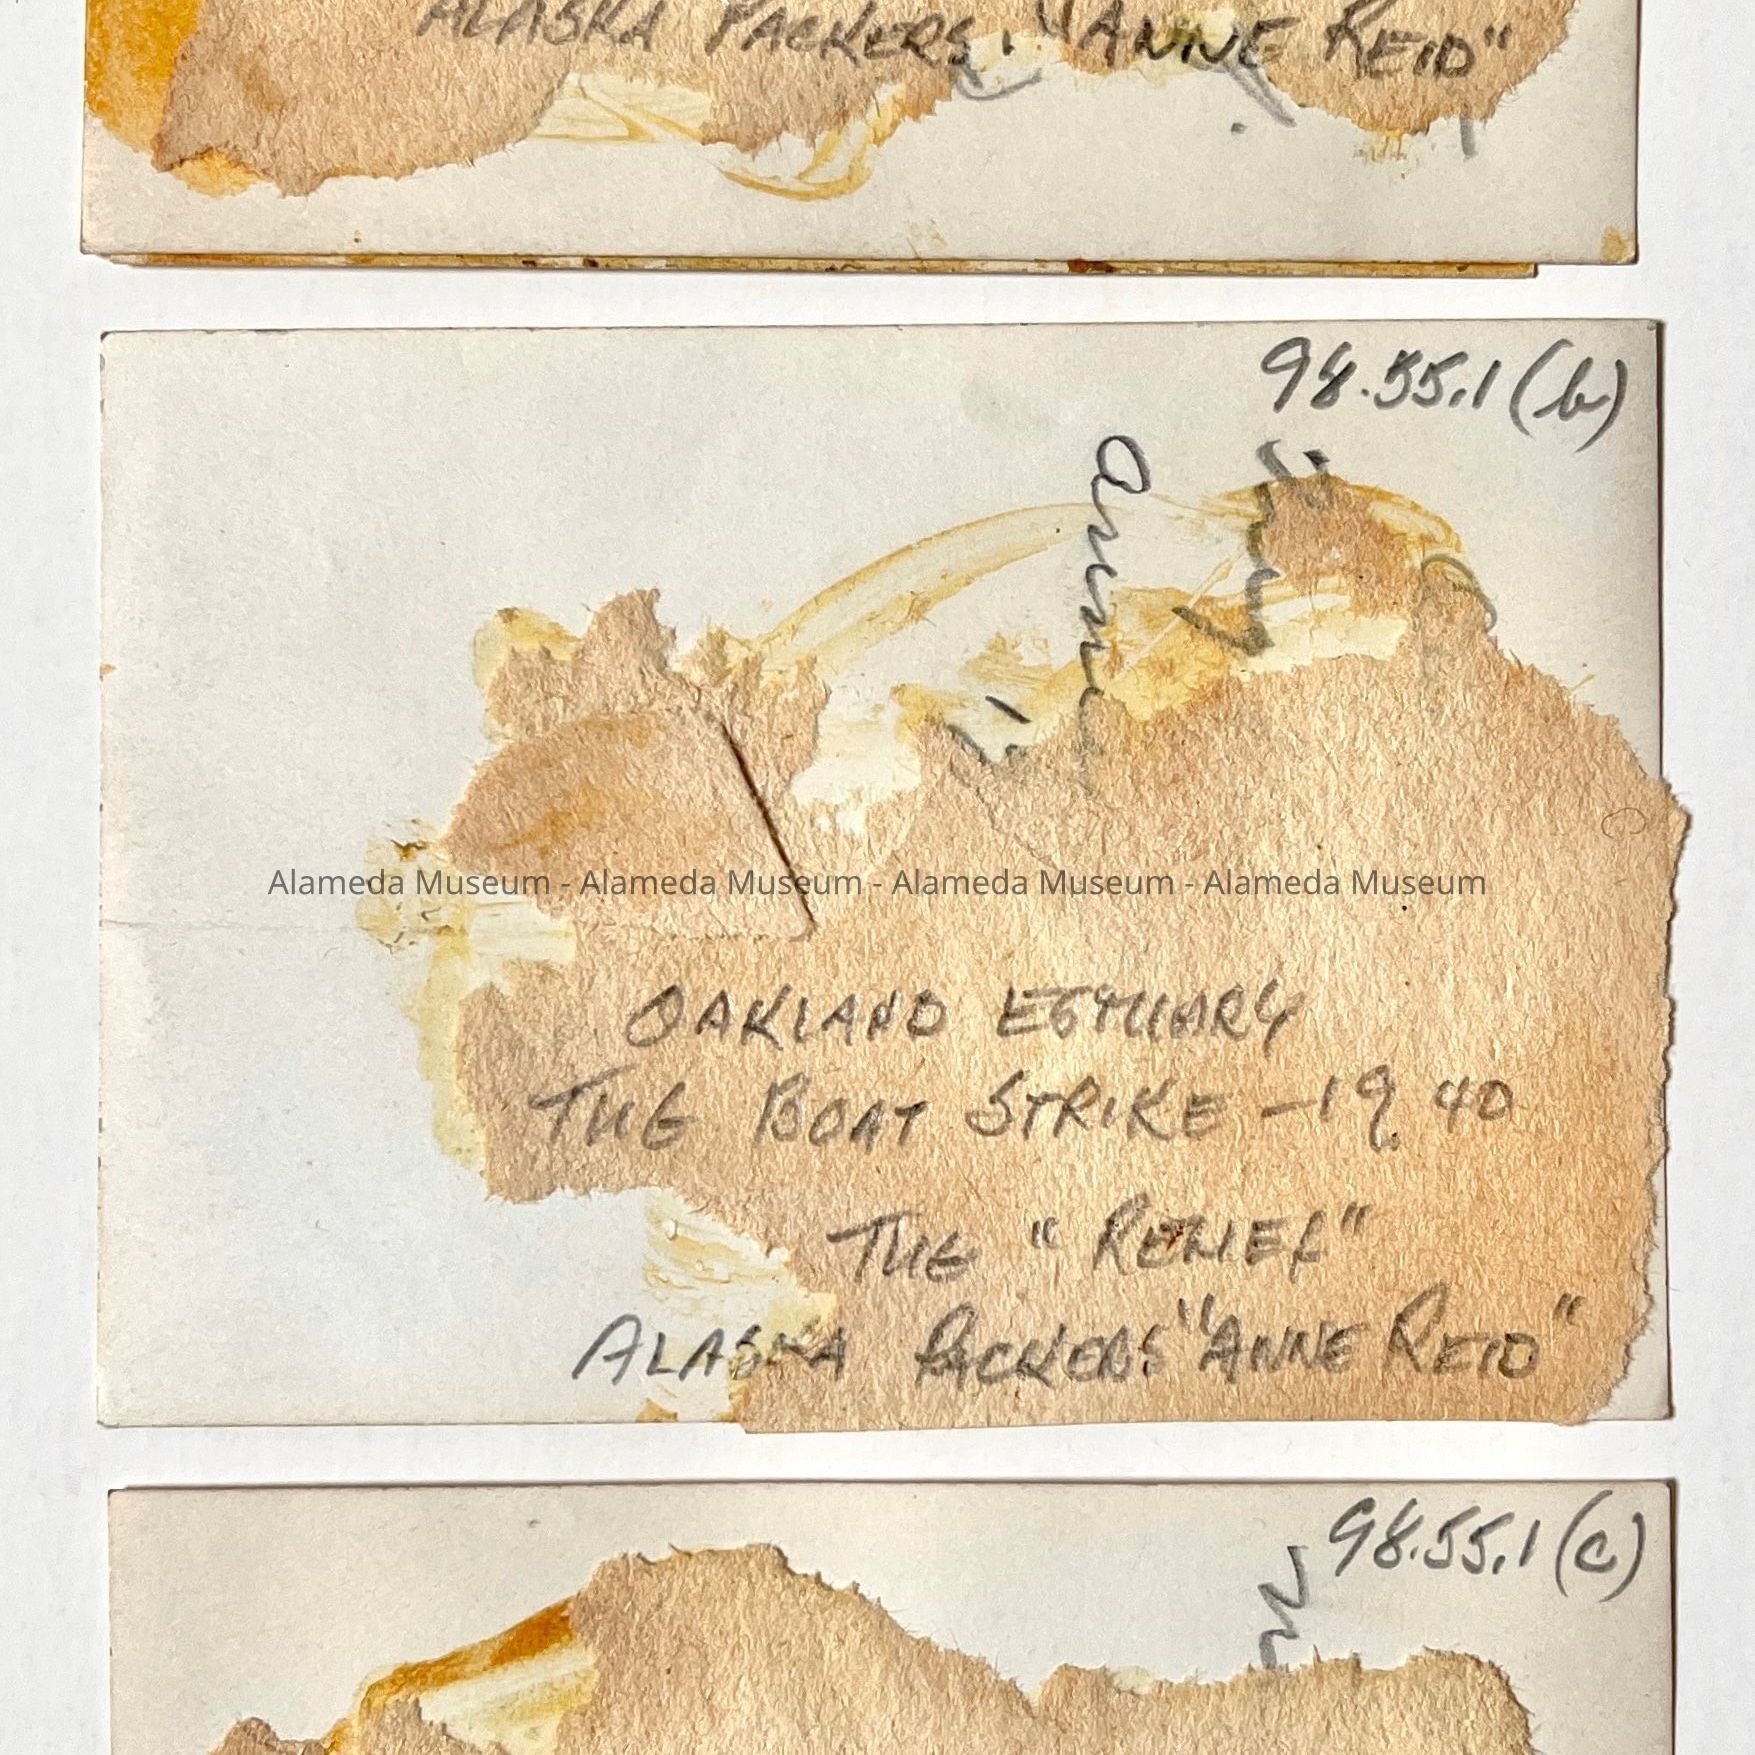 ALASKA PACKERS. "ANNE REID"
98.55.1 (b)
Alameda Museum - Alameda Museum - Alameda Museum - Alameda Museum
OAKLAND ESTUARY
THE BOAT STRIKE - 1940
THE "RELIEF"
ALASKA PACKERS "ANNE REID"
98.55.1 (c)